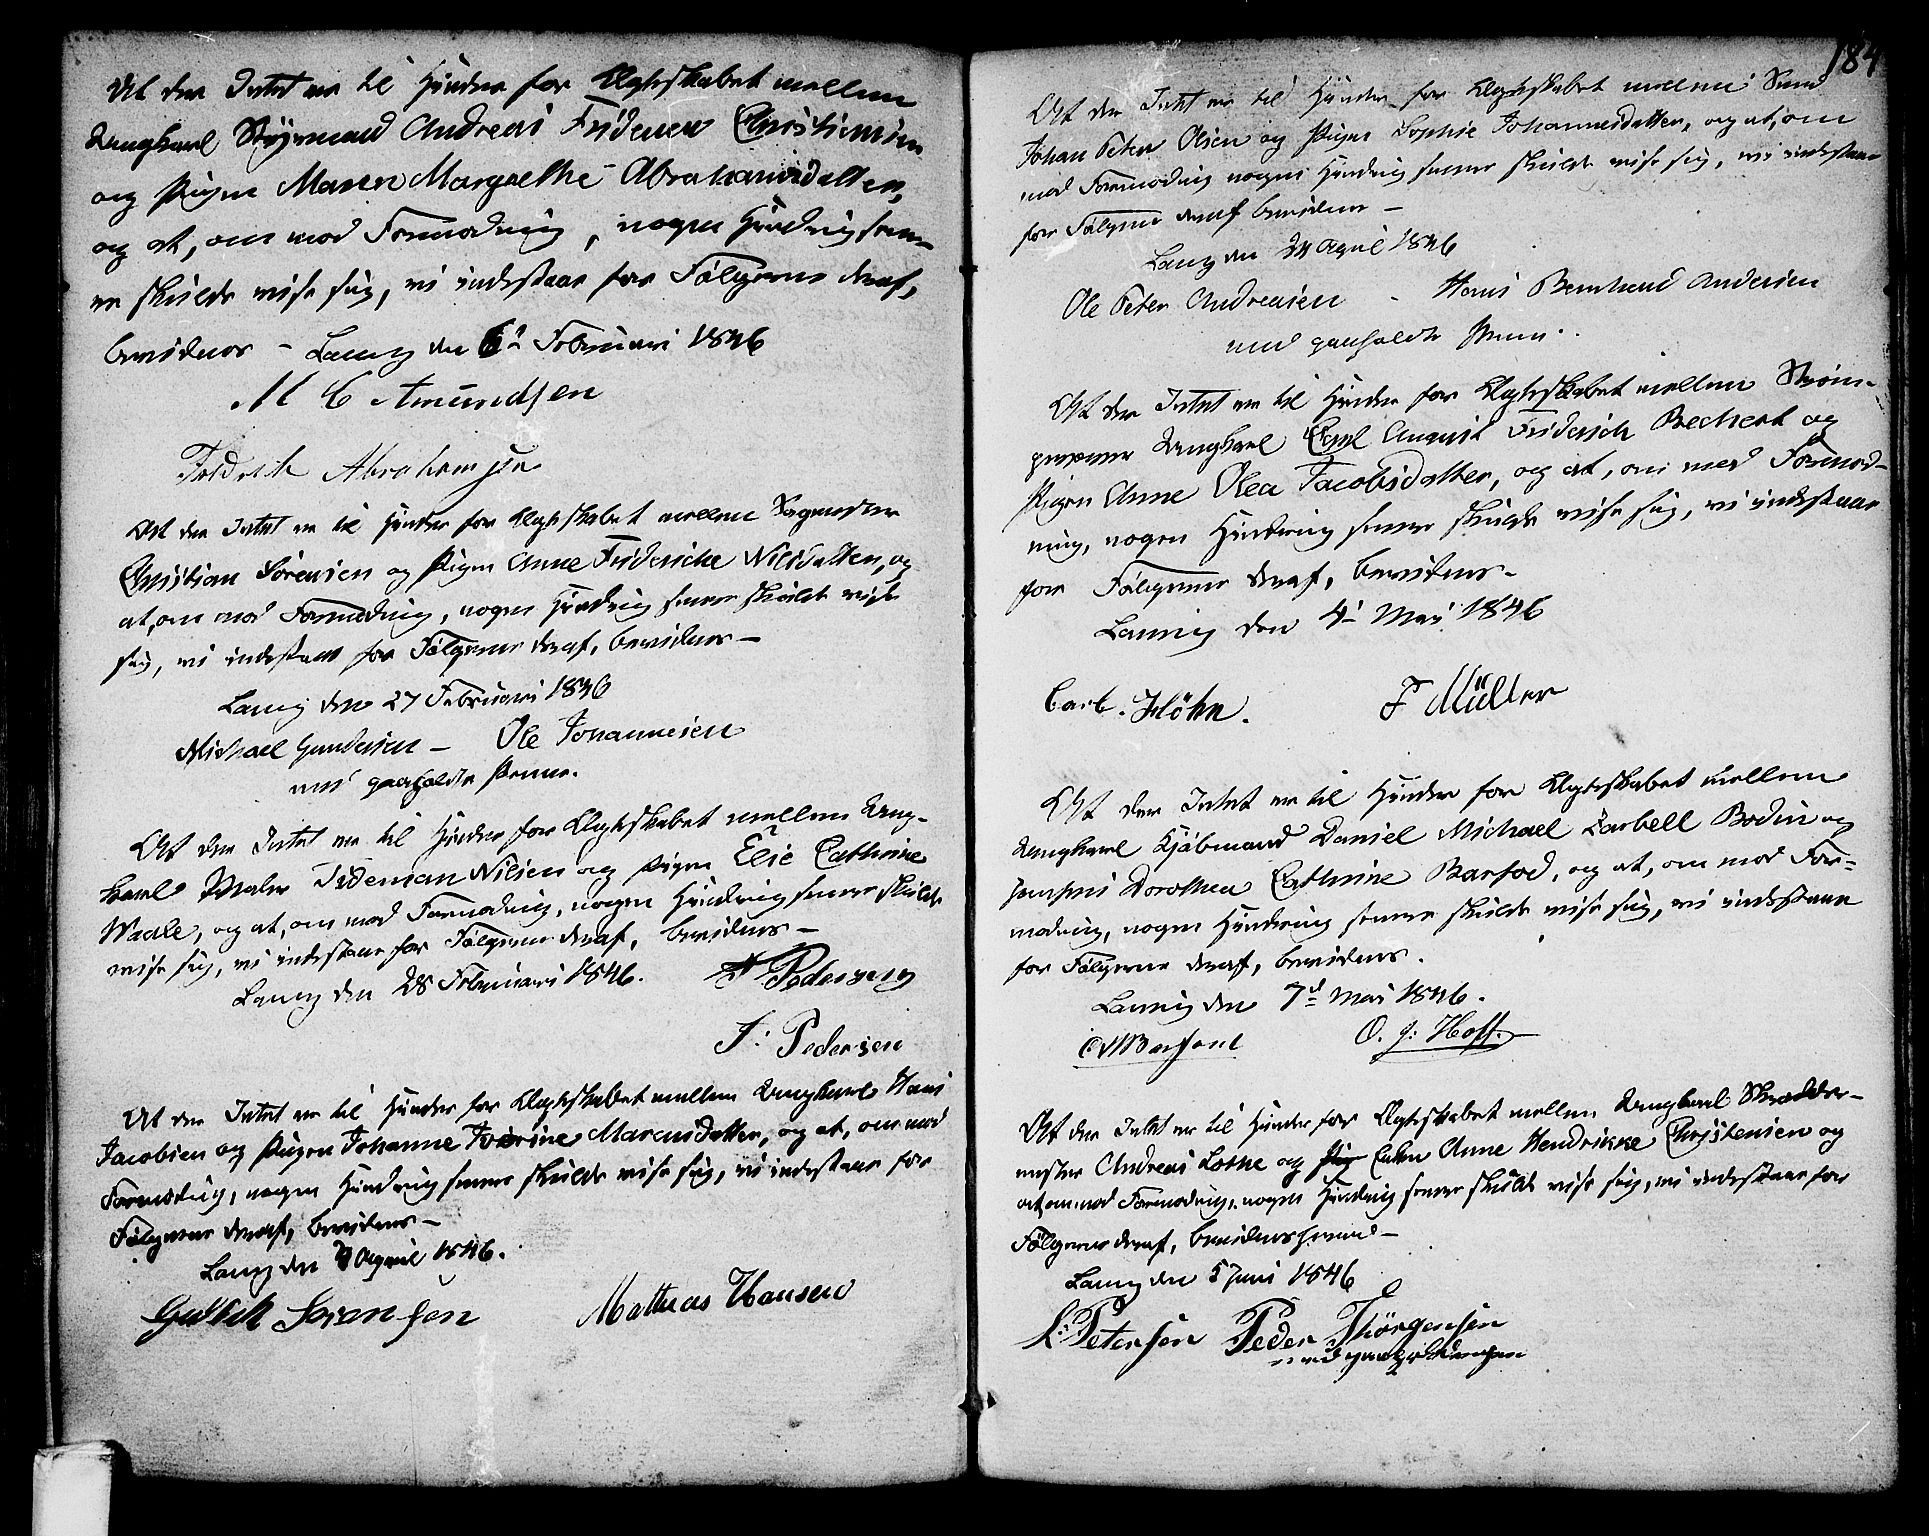 At der Intet er til Hinder for Ægteskabet mellem
Ungkarl Styrmand Andreas Friderich Christiansen
og Pigen Maren Margrethe Abrahamsdatter,
og at, om mod Formodning, nogen Hindring sene-
re skulde vise sig, vi indestaae for Følgerne deraf,
bevidnes - Laurvig den 6te Februari 1846
M C Amundsen
Fridrich Abrahamsen
At der Intet er til Hinder for Ægteskabet mellem Sagmester
Christian Sörensen og Pigen Anne Frideriche Nilsdatter, og
at, om mod Formodning, nogen Hindring senere skulde vise
sig, vi indestaae for Følgerne deraf, bevidnes -
Laurvig den 27 Februari 1846
Michael Gundersen - Ole Johannesen
med paaholdte Penne.
At der Intet er til Hinder for Ægteskabet mellem Ung-
karl Maler Tideman Nilsen og Pigen Elie Cathrine
Waale, og at, om mod Formodning, nogen Hindring senere skulde
vise sig, vi indestaae for Følgerne deraf, bevidnes -
Laurvig den 28 Februari 1846. Pedersen
J. Pedersen
At der Intet er til Hinder for Ægteskabet mellem Ungkarl Hans
Jacobsen og Pigen Johanne Marcusdatter, og at, om mod
Formodning, nogen Hindring senere skulde vise sig, vi indestaae for
Følgerne deraf, bevidnes -
Laurvig den April 1846.
Gullich Sörensen Mathias Hansen
184
At der Intet er til Hinder for Ægteskabet mellem
Johan Peter Olsen og Pigen Sophie Johannesdatter, og at, om
mod Formodning nogen Hindring senere skulde vise sig, vi indestaae
for Følgerne deraf bevidnes -
Laurvig den 24 April 1846
Ole Peter Andreasen - Hans Bernhard Andersen
med paaholdte Penne.
At der Intet er til Hinder for Ægteskabet mellem Strøm-
Ungkarl Carl August Friderich Bechert og
Pigen Anne Olea Jacobsdatter, og at, om mod Formod-
ning, nogen Hindring senere skulde vise sig, vi indestaae
for Følgerne deraf, bevidnes -
Laurvig den 4de Mai 1846
Carl. Höhn. F Müller
At der Intet er til Hinder for Ægteskabet mellem
Ungkarl Kjøbmand Daniel Michael Carbell Bodin og
Jomfrue Dorothea Cathrine Barfod, og at, om mod For-
modning, nogen Hindring senere skulde vise sig, vi indestaae
for Følgerne deraf, bevidnes.
Laurvig den 7de Mai 1846.
Barfod O. J. Hoff.
At der Intet er til Hinder for Ægteskabet mellem Ungkarl Skrædder-
mester Andreas Lothe og Enken Anne Hendrikke Christensen og
at, om mod Formodning, nogen Hindring senere skulde vise sig, vi indestaae for
Følgerne deraf, bevidnes herved -
Laurvig den 5 Juni 1846
L. Petersen Peder Thörgensen